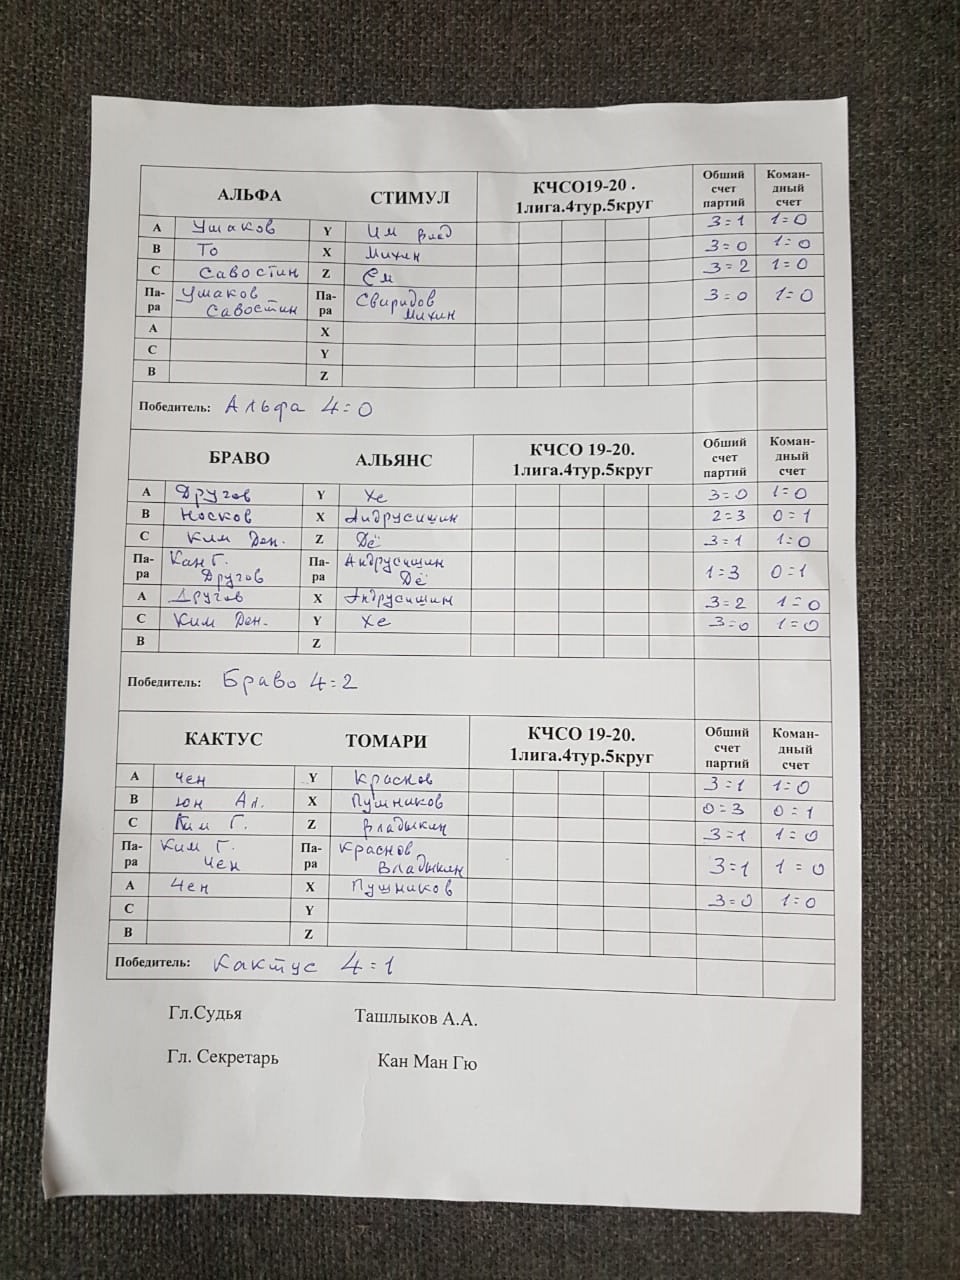 АЛЬФА СТИМУЛ КЧСО19-20 . 1лига.4тур.5круг Общий счет партий Коман-дный счет
A Ушаков Y Им влад 3=1 1=0
B То X Михин 3=0 1=0
C Савостин Z Ем 3=2 1=0
Па-ра Ушаков Савостин Па-ра Свиридов Михин 3=0 1=0
A X
C Y
B Z
Победитель: Альфа 4=0
БРАВО АЛЬЯНС КЧСО 19-20. 1лига.4тур.5круг Общий счет партий Коман-дный счет
A Другов Y Хе 3=0 1=0
B Носков X Андрусишин 2=3 0=1
C Ким Ден. Z Дё 3=1 1=0
Па-ра Кан Г. Другов Па-ра Андрусишин Дё 1=3 0=1
A Другов X Андрусишин 3=2 1=0
C Ким Ден. Y Хе 3=0 1=0
B Z
Победитель: Браво 4=2
КАКТУС ТОМАРИ КЧСО 19-20. 1лига.4тур.5круг Общий счет партий Коман-дный счет
A Чен Y Краснов 3=1 1=0
B Юн Ал. X Пушников 0=3 0=1
C Ким Г. Z Владыкин 3=1 1=0
Па-ра Ким Г. Чен Па-ра Краснов Владыкин 3=1 1=0
A Чен X Пушников 3=0 1=0
C Y
B Z
Победитель: Кактус 4=1
Гл.Судья Ташлыков А.А.
Гл. Секретарь Кан Ман Гю